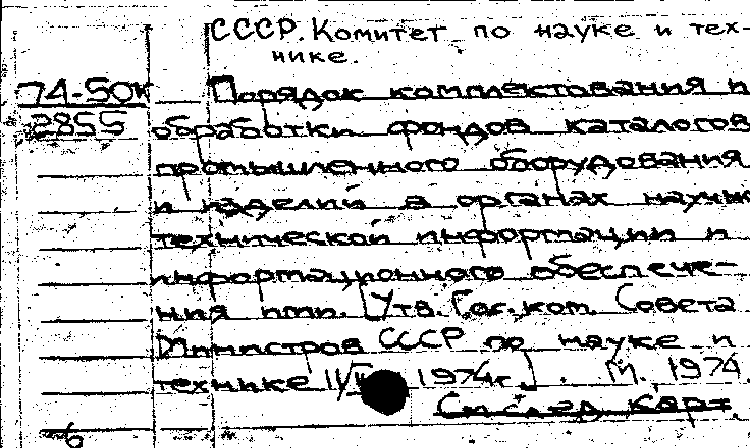 СССР. Комитет по науке и тех-
нике.
74-50к Порядок комплектования и
2855 обработки фондов каталогов
промышленного оборудования
и изделий в органах научно
технической информации и
информационного обеспече-
ния пти. [Утв. Гос. ком. Совета
Министров СССР по науке и
технике 1974г.]. М., 1974.
См. след. карт.
6